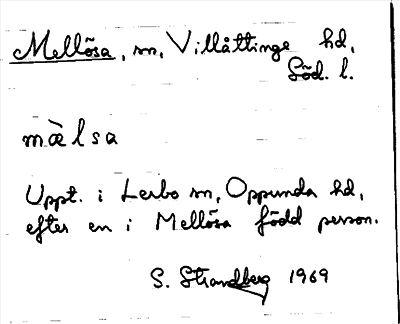 Mellösa, sn, Villåttinge hd,
Söd. l.
mὰlsa
Uppt. i Lerbo sn, Oppunda hd,
efter en i Mellösa född person.
S. Strandberg 1969